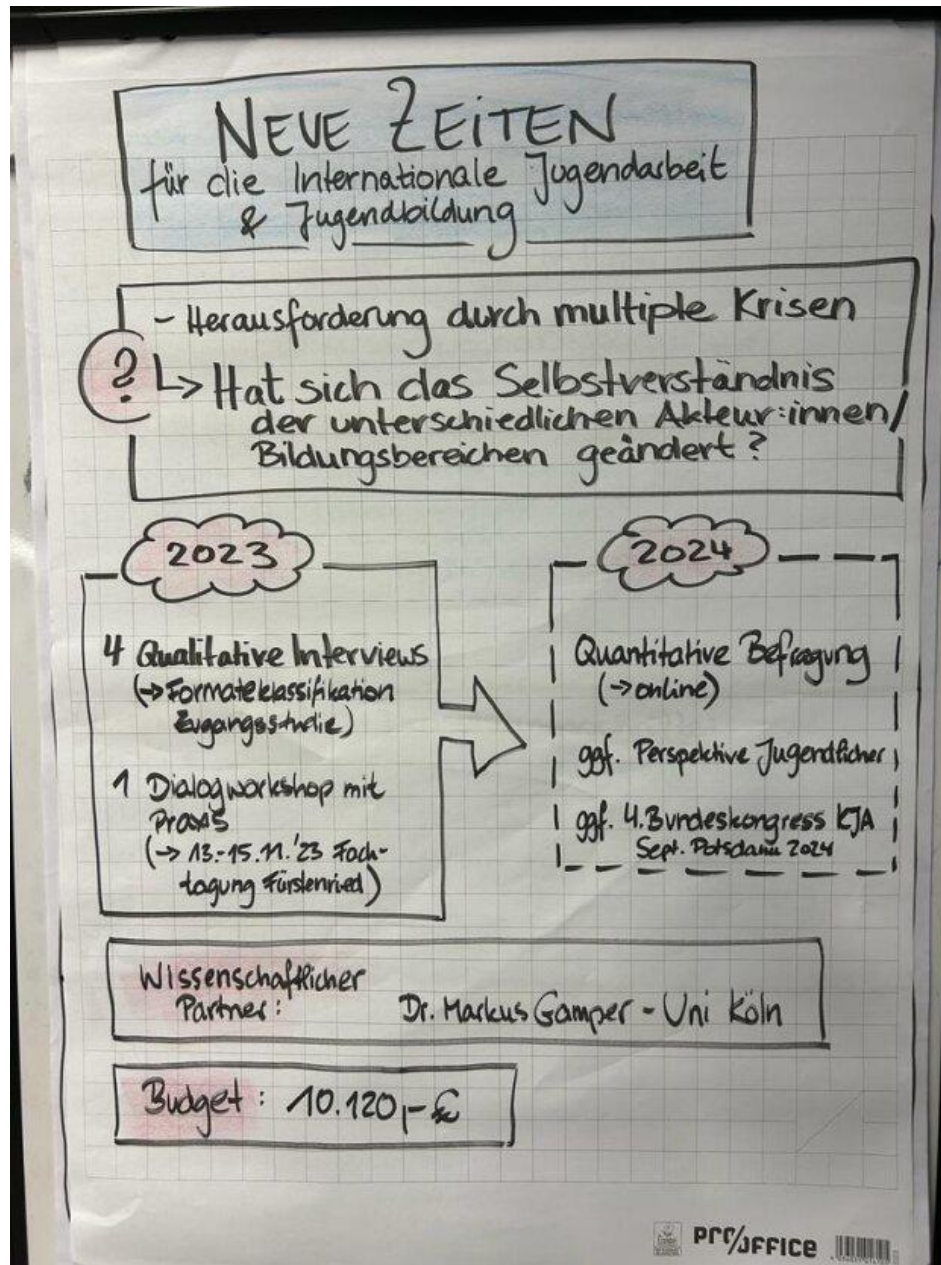 NEUE ZEITEN
für die Internationale Jugendarbeit
& Jugendbildung
- Herausforderung durch multiple Krisen
? ↳ Hat sich das Selbstverständnis
der unterschiedlichen Akteur:innen/
Bildungsbereichen geändert?
2023
4 Qualitative Interviews
(→ Formateklassifikation
Zugangsstudie)
1 Dialogworkshop mit
Praxis
(→ 13.-15.11.'23 Fach-
tagung Fürstenried)
2024
Quantitative Befragung
(→ online)
ggf. Perspektive Jugendlicher
ggf. 4. Bundeskongress KJA
Sept. Potsdam 2024
Wissenschaftlicher
Partner: Dr. Markus Gamper - Uni Köln
Budget: 10.120,-€
PRO/OFFICE